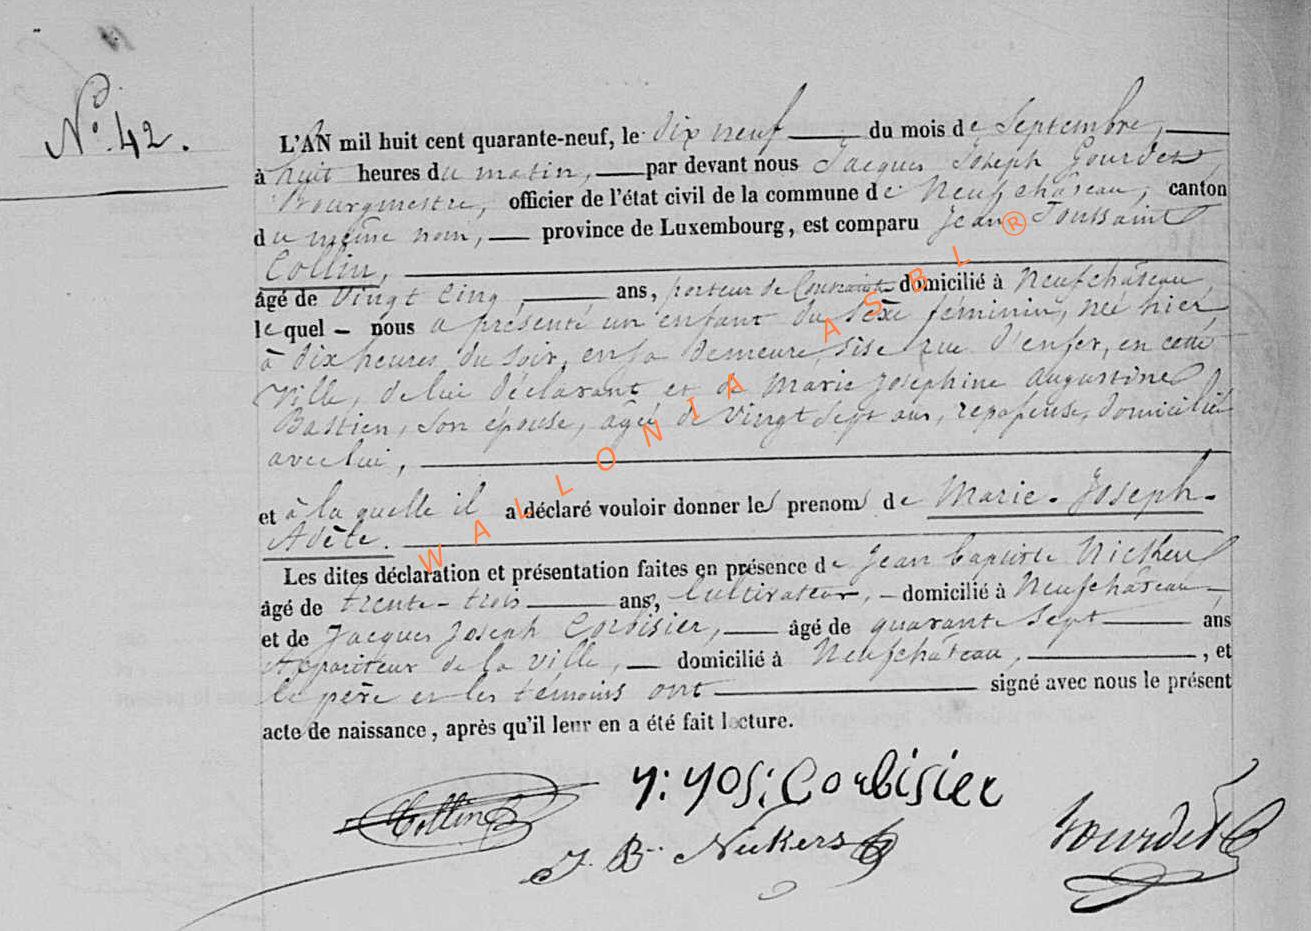 N° 42.
L'AN mil huit cent quarante-neuf, le dix neuf du mois de Septembre,
à huit heures du matin, par devant nous Jacques Joseph Gourdet
Bourgmestre, officier de l'état civil de la commune de Neufchâteau, canton
du même nom, province de Luxembourg, est comparu Jean Toussaint
Collin,
âgé de vingt cinq, ans, porteur de Contrainte domicilié à Neufchâteau,
lequel nous a présenté un enfant du sexe féminin, né hier
à dix heures du soir, en sa demeure, sise rue d'enfer, en cette
ville, de lui déclarant et de Marie Joséphine Augustine
Bastien, son épouse, agée de vingt sept ans, repasseuse, domiciliée
avec lui,
et à la quelle il a déclaré vouloir donner les prenoms de Marie-Joseph-
Adèle.
Les dites déclaration et présentation faites en présence de Jean Baptiste
âgé de trente-trois ans, Cultivateur, domicilié à Neufchâteau,
et de Jacques Joseph Corbisier, âgé de quarante sept ans
appariteur de la ville, domicilié à Neufchâteau, , et
le père et les témoins ont signé avec nous le présent
acte de naissance, après qu'il leur en a été fait lecture.
Collin
J: Jos: Corbisier
J. B. Nickers
Gourdet
WALLONIA ® ASBL